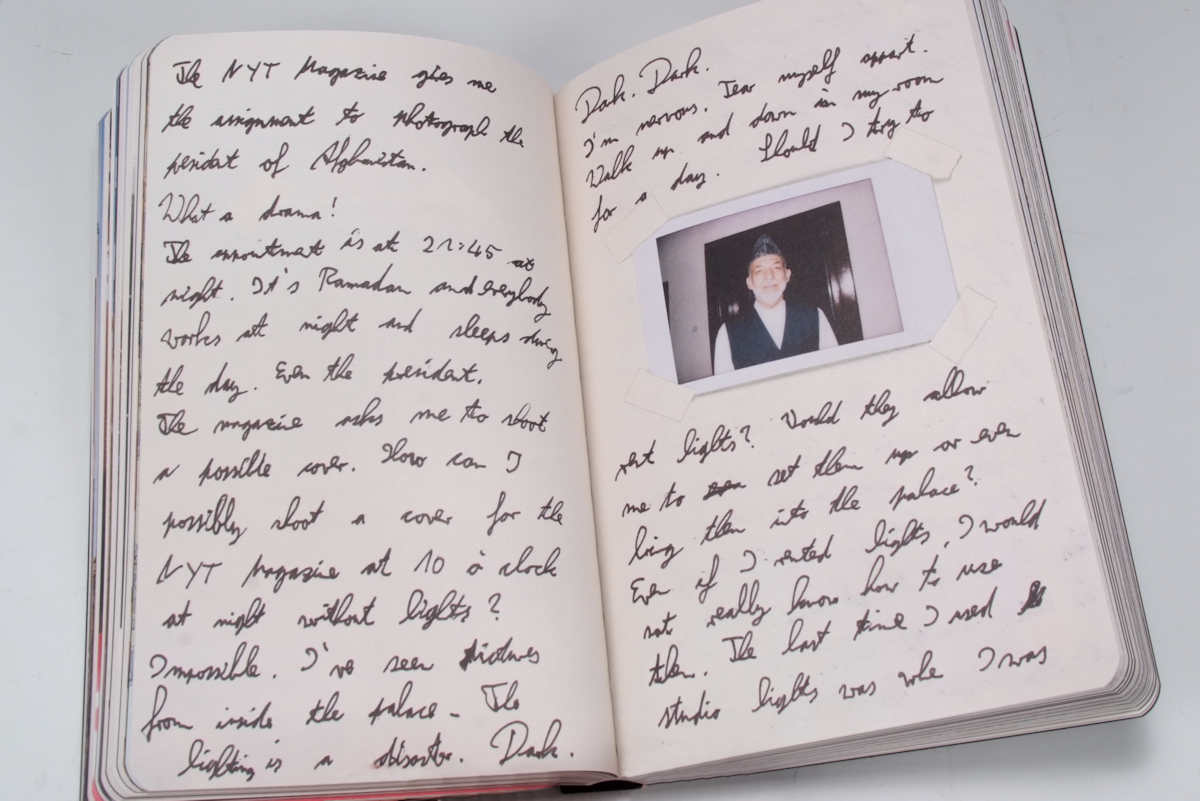 The NYT Magazine gives me
the assignment to photograph the
pesident of Afghanistan.
What a drama!
The appointment is at 21:45 at
night. It's Ramadan and everybody
works at night and sleeps during
the day. Even the president.
The magazine asks me to shoot
a possible cover. How can I
possibly shoot a cover for the
NYT Magazine at 10 o'clock
at night without lights?
Impossible. I've seen pictures
from inside the palace - The
lighting is a disaster. Dark.
Dark. Dark.
I'm nervous. Tear myself appart.
Walk up and down in my room
for a day. Should I try to
rent lights? Would they allow
me to set them up or even
bring them into the palace?
Even if I rented lights, I would
not really know how to use
them. The last time I used
studio lights was whe I was